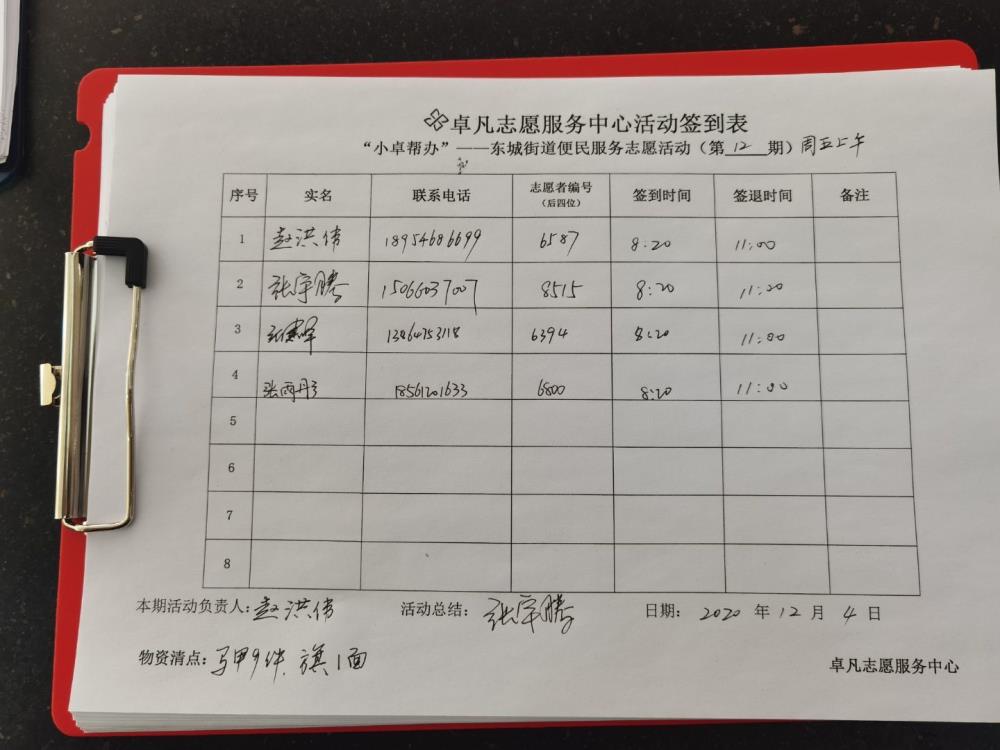 卓凡志愿服务中心活动签到表
“小卓帮办”——东城街道便民服务志愿活动(第 12 期)周五上午
序号 实名 联系电话 志愿者编号(后四位) 签到时间 签退时间 备注
1 赵洪伟 18954686699 6587 8:20 11:00
2 张宇腾 15066037007 8515 8:20 11:20
3 13464753118 6394 8:20 11:00
4 张雨彤 18561201633 6800 8:20 11:00
5
6
7
8
本期活动负责人:赵洪伟 活动总结:张宇腾 日期:2020 年 12 月 4 日
物资清点:马甲9件、旗1面
卓凡志愿服务中心